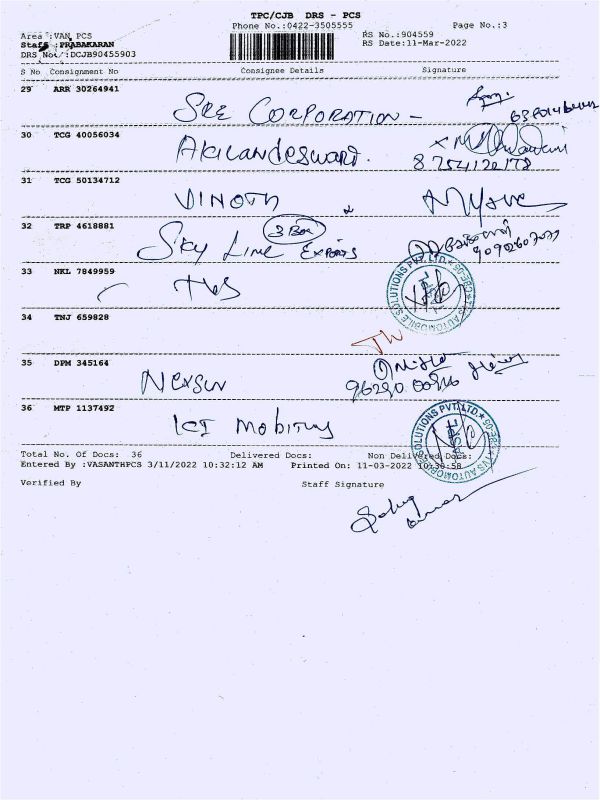 TPC/CJB DRS - PCS
Phone No.:0422-3505555 Page No.:3
Area :VAN PCS RS No.:904559
Staff :PRABAKARAN RS Date:11-Mar-2022
DRS No. :DCJB90455903
S No Consignment No Consignee Details Signature
29 ARR 30264941
SRE CORPORATION -
30 TCG 40056034
AKILANDESWARI.
8754122178
31 TCG 50134712
VINOTH
32 TRP 4618881
3 Box
SKY LINE EXPORTS
33 NKL 7849959
TVS
AUTOMOBILE SOLUTIONS PVT. LTD
34 TNJ 659828
35 DPM 345164
NEXSUN
36 MTP 1137492
ICI MOBITUS
TVS AUTOMOBILE SOLUTIONS PVT. LTD
Total No. Of Docs: 36 Delivered Docs: Non Delivered Docs:
Entered By :VASANTHPCS 3/11/2022 10:32:12 AM Printed On: 11-03-2022 10:30:58
Verified By Staff Signature